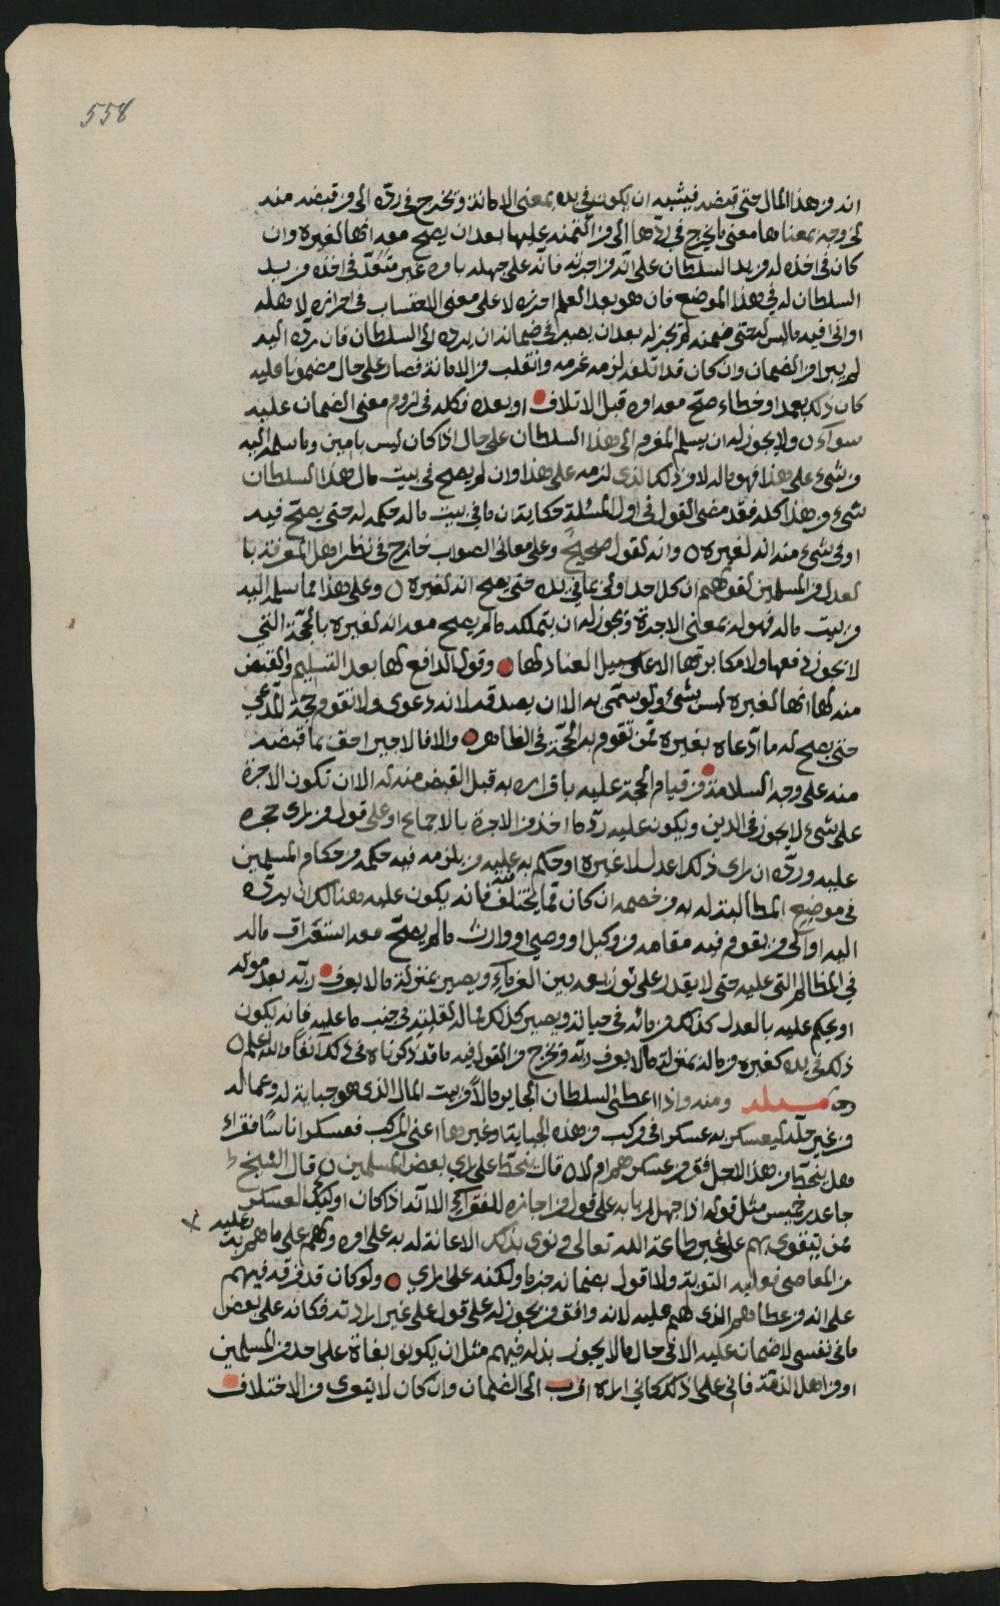 558
انه من هذا المال حتى قبضه فيشبه ان يكون في يده بمعنى الامانة ويخرج في رده الى من قبضه منه
لخروجه بمعناها معنى ما يخرج في ردها الى من ائتمنه عليها بعد ان يصح معه انها لغيره وان
كان في اخذه له من يد السلطان على انه من اجرته فانه على جهله بامره غير متعد في اخذه من يد
السلطان له في هذا الموضع فان هو بعد العلم احرزه لا على معنى الاحتساب في احرازه لاهله
او اتى فيه ما ليس له حتى ضمنه لم يجز له بعد ان يصير في ضمانه ان يرده الى السلطان فان رده اليه
لم يبرا من الضمان وان كان قد اتلفه لزمه غرمه وانتقلب من الامانة فصار على حال مضمونا عليه
كان ذلك بعمد او خطاء صح معه امره قبل الاتلاف او بعده فكله في لزوم معنى الضمان عليه
سواء ولا يجوز له ان يسلم المغرم الى هذا السلطان على حال اذا كان ليس بامين وما سلمه اليه
من شيء على هذا فهو ماله لا من ذلك الذي لزمه على هذا وان لم يصح في بيت مال هذا السلطان
شيء من هذا كله فقد مضى القول في اول المسئلة حكاية ان ما في بيت ماله حكمه له حتى يصح فيه
او في شيء منه انه لغيره وانه لقول صحيح وعلى معاني الصواب خارج في نظر اهل المعرفة با
لعدل من المسلمين لقولهم ان كل احد اولى بما في يده حتى يصح انه لغيره وعلى هذا فما سلمه اليه
من بيت ماله فهو له بمعنى الاجرة ويجوز له ان يتملكه ما لم يصح معه انه لغيره بالحجة التي
لا يجوز دفعها ولا مكابرتها الا على سبيل العناد لها وقول الدافع لها بعد التسليم والقبض
منه لها انها لغيره ليس بشيء ولو سمى به الا ان يصدقه لانه دعوى ولا تقوم حجة المدعي
حتى يصح له ما ادعاه بغيره ممن تقوم به الحجة في الظاهر والا فالاجير احق بما قبضه
منه على وجه السلامة من قيام الحجة عليه باقراره به قبل القبض منه له الا ان تكون الاجرة
على شيء لا يجوز في الدين ويكون عليه رد ما اخذ من الاجرة بالاجماع او على قول من يرى حجره
عليه ورده ان راى ذلك اعدل لا غيره او حكم به عليه من يلزمه فيه حكمه من حكام المسلمين
في موضع المطالبة له به من خصمه ان كان مما يختلف فيه فانه يكون عليه هنالك ان يرده
اليه او الى من يقوم فيه مقامه من وكيل او وصي او وارث ما لم يصح معه استغراق ماله
في المظالم التي عليه حتى لا يقدر على توزيعه بين الغرماء ويصير بمنزلة ما لا يعرف ربه بعد موته
او يحكم عليه بالعدل كذلك في ماله في حياته ويصير كذلك ماله لقلته في جنب ما عليه فانه يكون
ذلك في يده كغيره من ماله بمنزلة ما لا يعرف ربه ويخرج من القول فيه ما قد ذكرناه في ذلك آنفا والله اعلم
مسئلة ومنه واذا اعطى السلطان الجاير مالا من بيت المال الذي هو جباية له وعماله
من غير حله ليعسكر به عسكرا في مركب من هذه الجباية او غيرها اعنى المركب فعسكر اناسا فقراء
هل ينحط من هذا لاجل فقر من عسكرهم ام لا قال ينحط على راي بعض المسلمين قال الشيخ
جاعد بن خميس مثل قوله اذا جهل اربابه على قول من اجازه للفقراء الا انه اذا كان اولئك العسكر
ممن يتقوى بهم على غير طاعة الله تعالى ونوى بذلك الاعانة له به على امره ولهم على ما هم به وعليه
من المعاصي فعليه التوبة ولا اقول بضمانه جزما ولكنه على راي ولو كان قد فرقه فيهم
على انه من عطاهم الذي لهم عليه لانه وافق من يجوز له على قول على غير ارادته فكانه على بعض
ما في نفسي لا ضمان عليه الا في حال ما لا يجوز بذله فيهم مثل ان يكونوا بغاة على احد من المسلمين
او من اهل الذمة فاني على ذلك كاني اراه اقرب الى الضمان وان كان لا يتعرى من الاختلاف